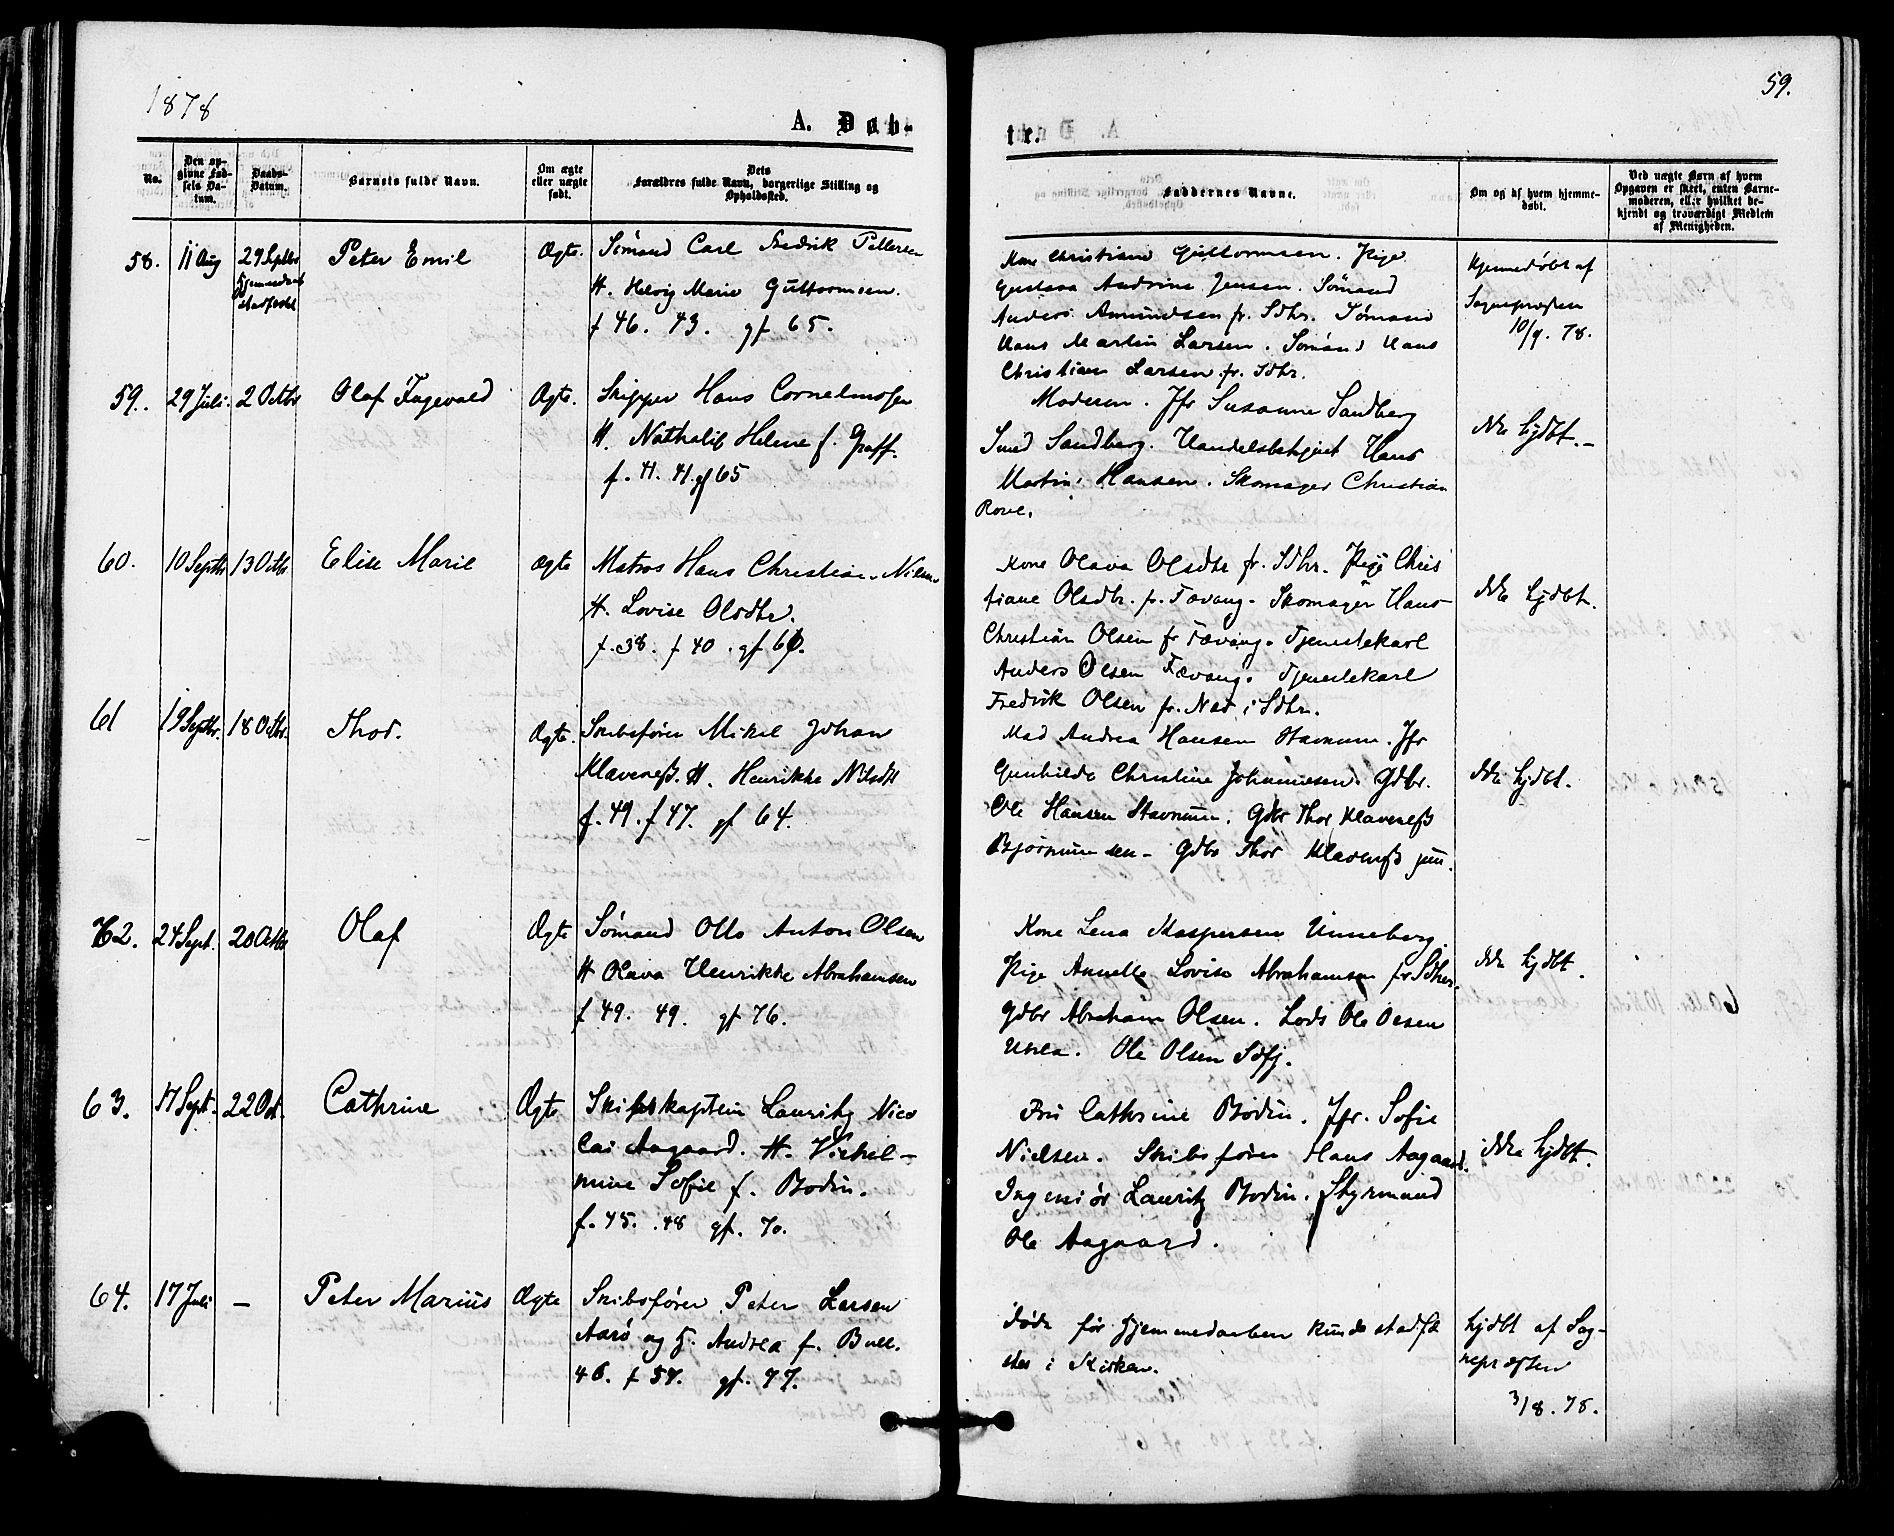 1878
59.
A. Døb-
tre.
No.
Den op-
givne Fød-
sels Da-
tum.
Daabs-
Datum.
Barnets fulde Navn.
Om ægte
eller uægte
født.
Dets
Forældres fulde Navn, borgerlige Stilling og
Opholdssted.
Faddernes Navne.
Om og af hvem hjemme-
døbt.
Ved uægte Børn af hvem
Opgaven er skeet, enten Barne-
moderen, eller hvilket be-
kjendt og troværdigt Medlem
af Menigheden.
58. 11 Aug 29 Septbr Peter Emil Ægte. Sømand Carl Fredrik Pettersen
Hjemmedaab
stadfæstet
H. Helvig Marie Guttormsen.
f 46. 43. gf 65.
Kone Christiane Guttormsen. Pige
Gustava Andrine Jensen. Sømand
Anders Amundsen fr. Sdhr. Sømand
Hans Martin Larsen. Sømand Hans
Christian Larsen fr. Sdhr.
Hjemmedøbt af
Sognepræsten
10/9. 78.
59. 29 Juli. 2 Octbr Olaf Ingevald Ægte. Skipper Hans Cornelius
H. Nathalie Helene f. Graff.
f. 41. 41. gf 65
Moderen. Jfr Susanne Sandberg
Smed Sandberg. Handelsbetjent Hans
Martin Hansen. Skomager Christian
Rove.
ikke hjdbt.
60. 10 Septbr 13 Octbr Elise Marie Ægte Matros Hans Christian Nilsen
H. Lovise Olsdtr.
f. 38. f 40. gf 60.
Kone Olava Olsdtr fr. Sdhr. Pige Chris
tiane Olsdtr. fr. Fævang. Skomager Hans
Christian Olsen fr Fævang. Tjenestekarl
Anders Olsen Fævang. Tjenestekarl
Fredrik Olsen fr. Nes i Sdhr.
ikke hjdbt.
61 19 Septbr. 18 Octbr. Thor. Ægte. Skibsfører Mikal Johan
Klaveneß. H. Henrikke Nilsdt
f. 49. f 47. gf 64.
Mad Andrea Hansen Stavnum. Jfr
Gunhilda Christine Johannesen. Gdbr.
Ole Hansen Stavnum. Gdbr Thor Klaveneß
Bjørnum sen- Gdbr Thor Klaveneß jun.
ikke hjdbt.
62. 24 Sept. 20 Octbr Olaf Ægte Sømand Otto Anton Olsen
H Olava Henrikke Abrahamsen
f 49. 49. gf 76.
Kone Lena Kaspersen Unneberg.
Pige Annette Lovise Abrahamsen fr Sdher.
Gdbr Abraham Olsen. Lods Ole Olsen
Ukla. Ole Olsen Sdfj.
ikke hjdbt.
63. 17 Sept. 22 Oct. Cathrine Ægte Skibskaptein Lauritz Nico
lai Aagaard. H. Vilhel-
mine Sofie f. Bodin.
f. 45. 48 gf. 70.
Fru Cathrine Bodin. Jfr. Sofie
Nielsen. Skibsfører Hans Aagaard.
Ingeniør Lauritz Bodin. Styrmand
Ole Aagaard.
ikke hjdbt.
64. 17 Juli – Peter Marius Ægte Skibsfører Peter Larsen
Aarø og H. Andrea f. Bull.
46. f 54. gf. 77.
døde før Hjemmedaaben kunde stadfæ
stes i Kirken.
hjdbt af Sog-
nepræsten
3/8. 78.